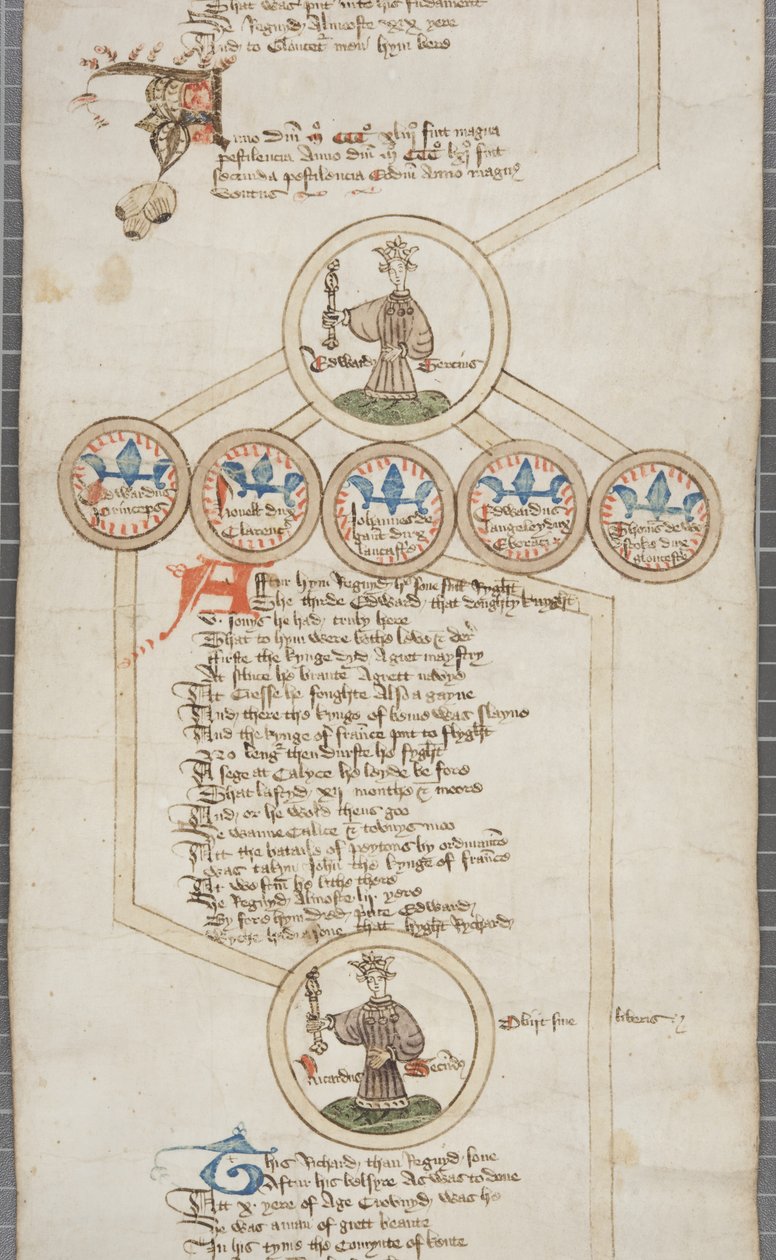 That was put into his fundament
He Regnyd Almoste xix yere
And to Gloucetr men hym bere
Anno dm̄ mo CCCo xliijo fuit magna
pestilencia Anno dm̄ mo CCCo lxjo fuit
secunda pestilencia Eodm̄ Anno magnus
ventus
Edward Tercius
Edwardus
Princeps
Leonell dux
Clarenc
Johannes de
gaut dux
lancastr
Edwardus
langeley dux
Eboraci
Thoms de wo
stoke dux
glouceste
Aftur hym Regnyd hs sone full Ryght
The thirde Edward that doughty knyght
sonys he had truly here
That to hym were bothe leve & der
ffirste the kynge dyd A gret maystry
At sluce he brante A grett navye
At Cresse he foughte Also a gayne
And there the kynge of beme was slayne
And the kynge of frānce put to flyght
No lengr then durste he fyght
A sege at Calyce he layde be fore
That lastyd xij months & more
And or he wold thens goo
He wanne Calice & townys moo
Att the bataile of peytons by ordinānce
was takyn John the kynge of frānce
At westm̄ he lithe there
He Regnyd Almoste lij yere
By fore hym dyed prince Edward
Wyche had a sone that hyght Rychard
Ricardus Secūdus
Obiit sine liberis
This Richard than Regnyd sone
Aftur his belsyre As was to done
Att x yere of Age Crownyd was he
He was a man of grett beaute
In his tyme the Comynte of kente